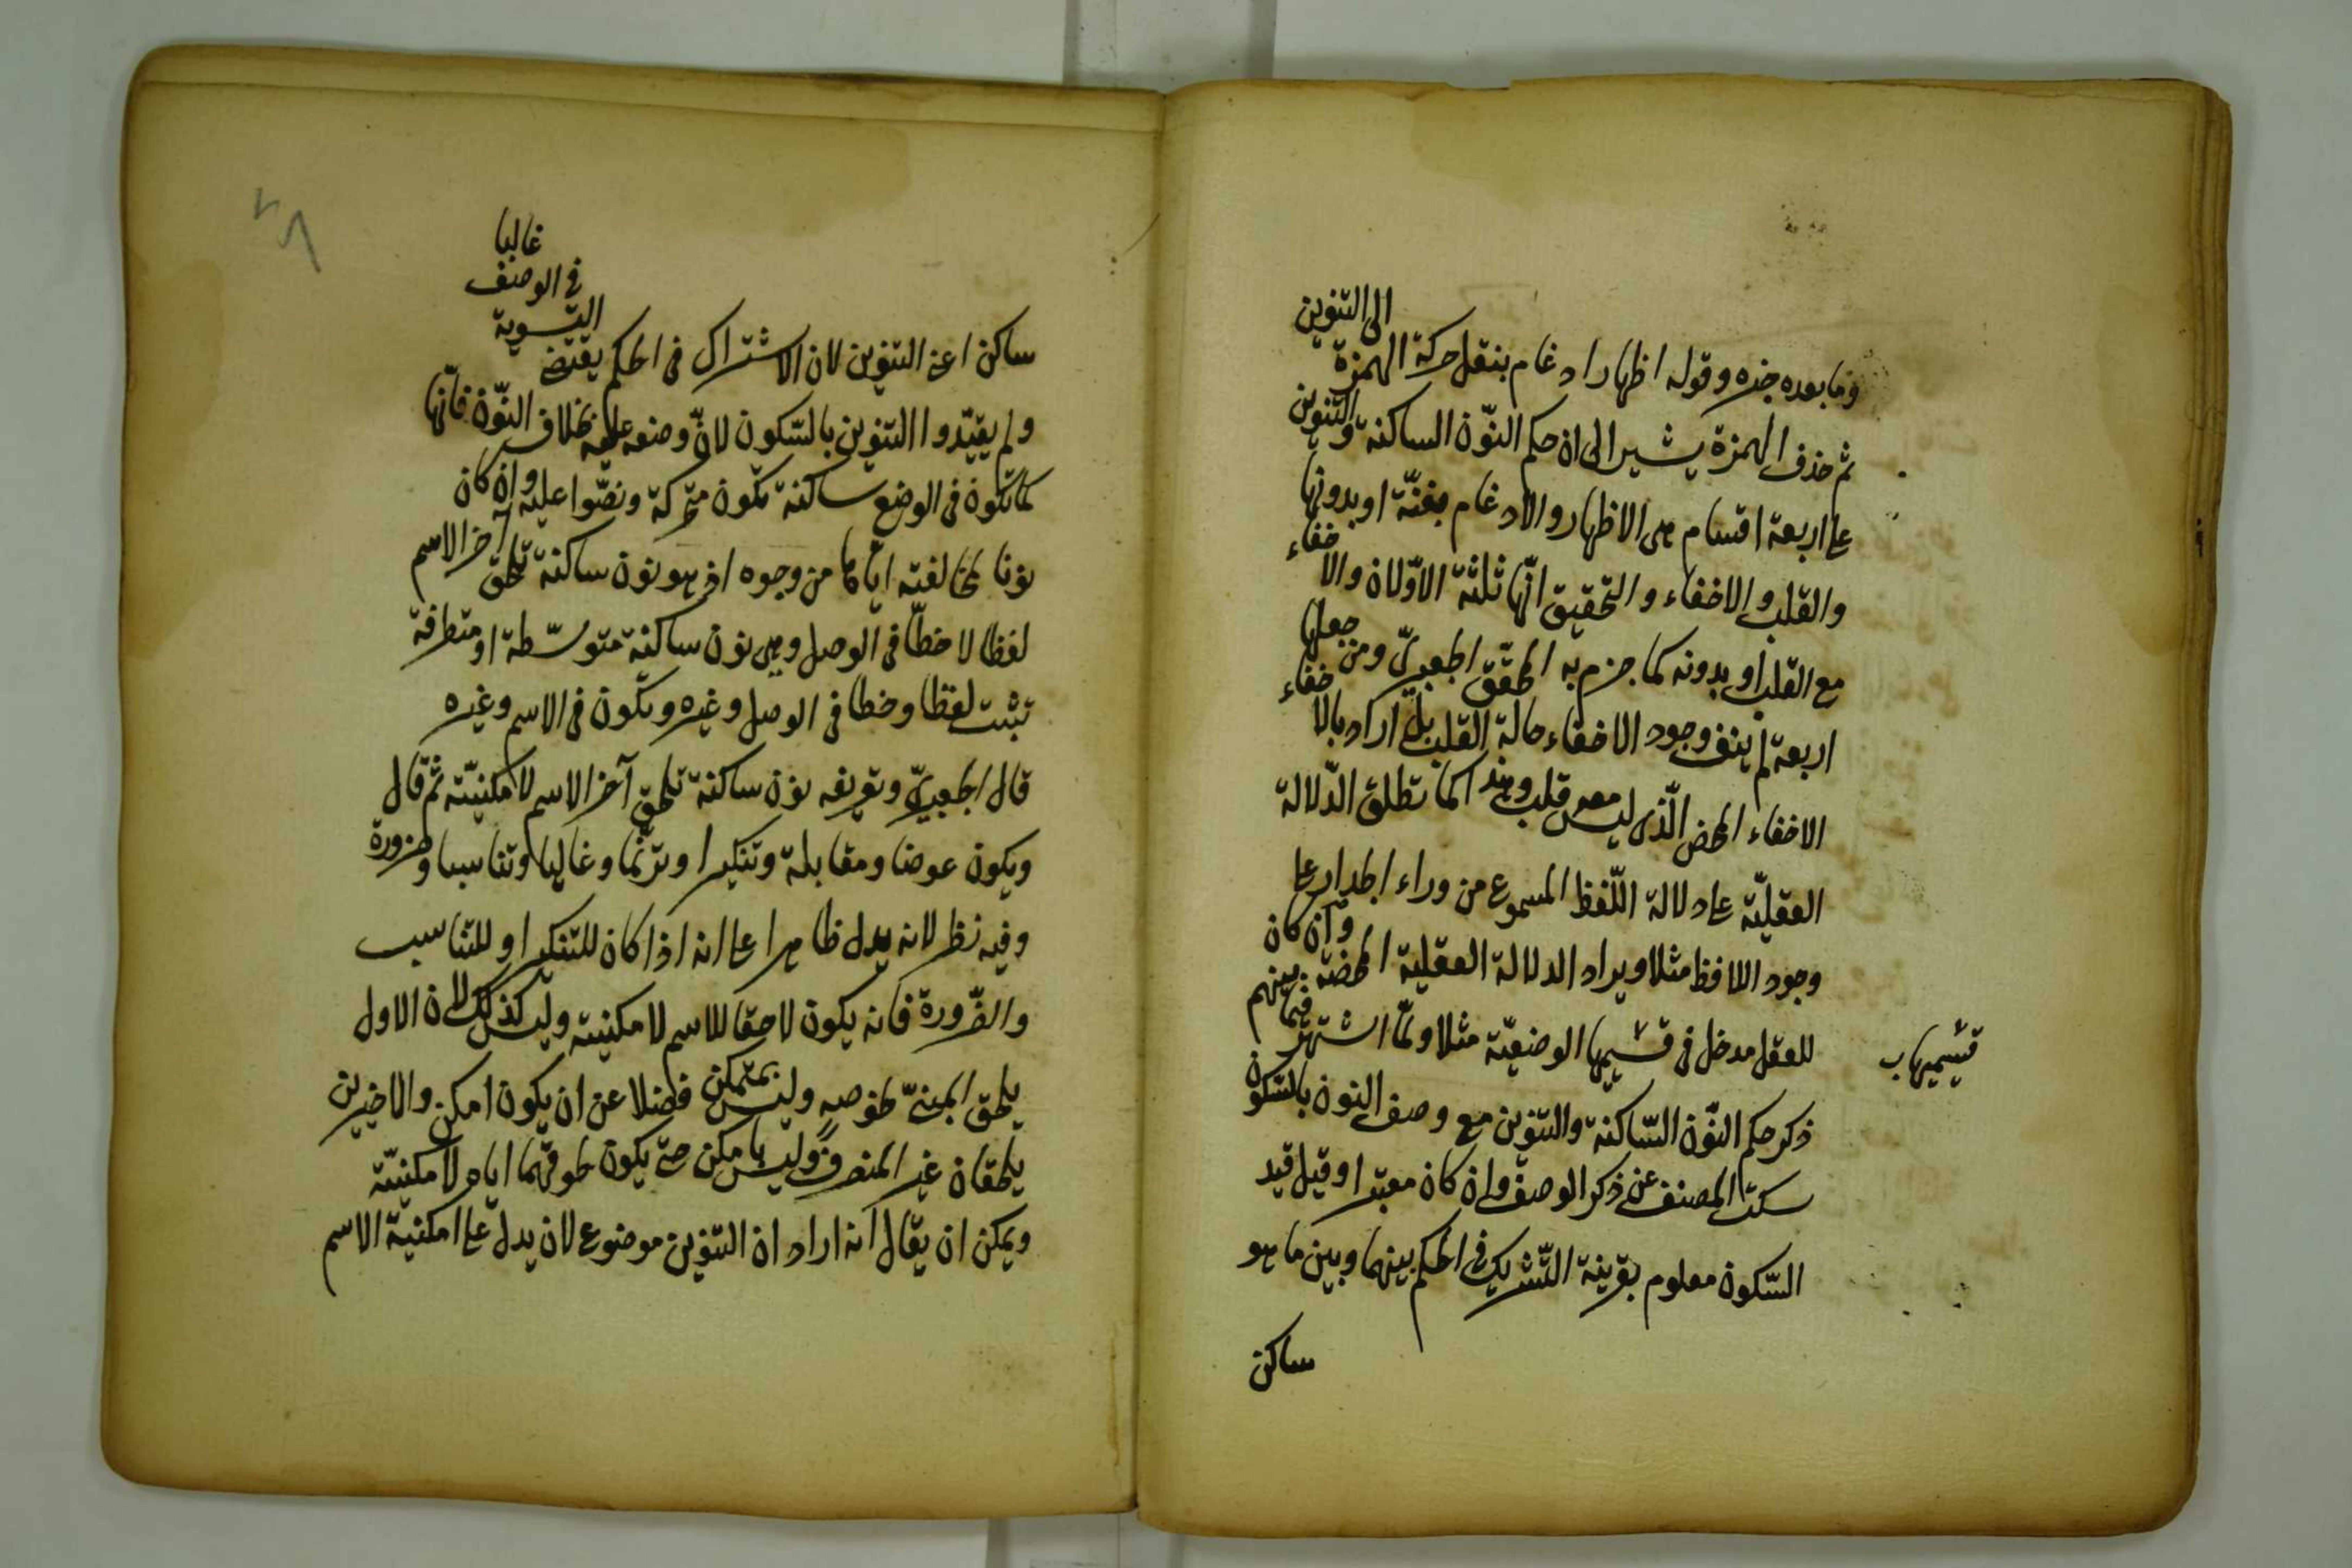 وما بعده خبره وقوله اظهار ادغام بنقل حركة الهمزة الى التنوين
ثم حذف الهمزة يشير الى ان حكم النّون الساكنة والتنوين
على اربعة اقسام هى الاظهار والادغام بغنّة او بدونها
والقلب والاخفاء والتحقيق انّها ثلثة الاوّلان والاخفاء
مع القلب او بدونه كما جزم به المحقّق الجعبرىّ ومن جعلها
اربعة لم ينف وجود الاخفاء حالة القلب بل اراد بالاخفاء
الاخفاء المحض الّذى ليس معه قلب وهذا كما تطلق الدّلالة
العقليّة على دلالة اللّفظ المسموع من وراء الجدار على
وجود اللافظ مثلا ويراد الدلالة العقلية المحضة وان كان
للعقل مدخل فى قسيمها الوضعيّة مثلا ولمّا اشتهر فيما بينهم
قسيميها ب
ذكر حكم النّون السّاكنة والتنوين مع وصف النون بالسّكون
سكت المصنف عن ذكر الوصف وان كان معتبرا وقيل قيد
السّكون معلوم بقرينة التّشريك فى الحكم بينهما وبين ما هو
ساكن
٢٨
ساكن اعنى التنوين لان الاشتراك فى الحكم يقتضى التسوية فى الوصف غالبا
ولم يقيّدوا التنوين بالسّكون لانّ وضعه عليه بخلاف النّون فانّها
كما تكون فى الوضع ساكنة تكون متحركة ونصّوا عليه وان كان
نونا لمخالفته ايّاها من وجوه اذ هو نون ساكنة تلحق آخر الاسم
لفظا لا خطّا فى الوصل وهى نون ساكنة متوسّطة او متطرفة
تثبت لفظا وخطا فى الوصل وغيره وتكون فى الاسم وغيره
قال الجعبرىّ وتعريفه نون ساكنة تلحق آخر الاسم لامكنيّته ثم قال
ويكون عوضا ومقابلة وتنكيرا وترنّما وغاليا وتناسبا وضرورة
وفيه نظر لانه يدل ظاهرا على انه اذا كان للتنكير او للتناسب
والضّرورة فانه يكون لاحقا للاسم لامكنيته وليس كذلك لان الاول
يلحق المبنىّ بخصوصه وليس بمتمكن فضلا عن ان يكون امكن والاخيرين
يلحقان غير المنصرف وليس بامكن حتى يكون لحوقهما اياه لامكنيّة
ويمكن ان يقال انه اراد ان التنوين موضوع لان يدل على امكنيّة الاسم